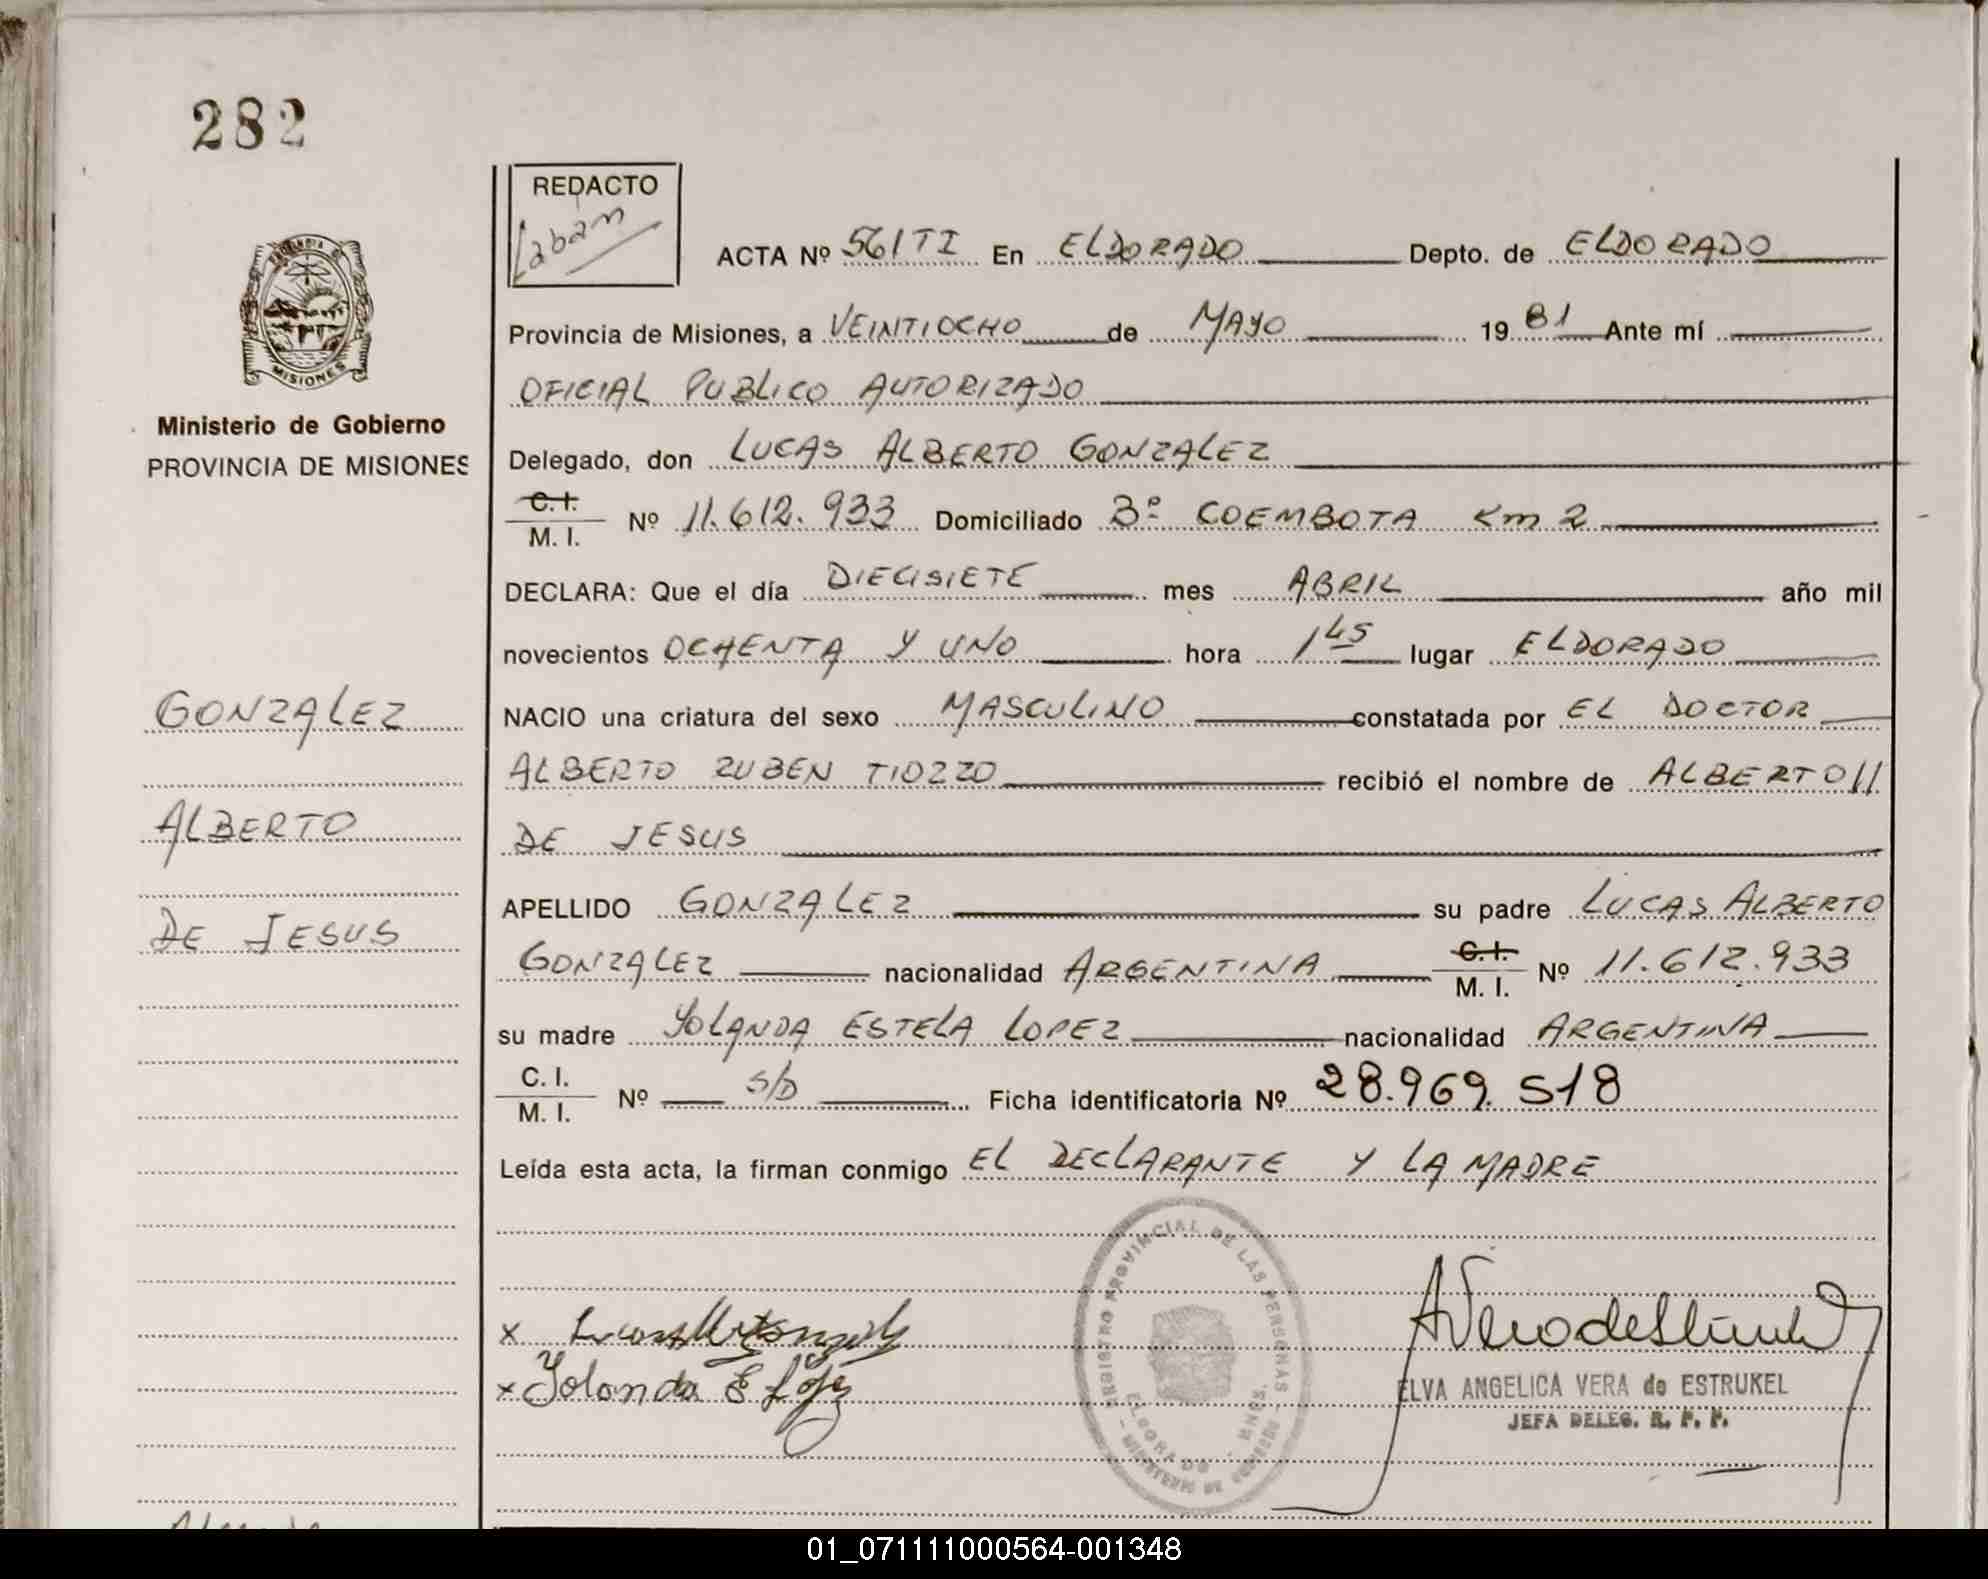 282
REDACTO
Laban
ACTA Nº 561TI En ELDORADO Depto. de ELDORADO
Provincia de Misiones, a VEINTIOCHO de MAYO 19 81 Ante mí
OFICIAL PUBLICO AUTORIZADO
MISIONES
Ministerio de Gobierno
PROVINCIA DE MISIONES
Delegado, don LUCAS ALBERTO GONZALEZ
C. I.
M. I. Nº 11.612.933 Domiciliado Bº COEMBOTA Km 2
DECLARA: Que el día DIECISIETE mes ABRIL año mil
novecientos OCHENTA Y UNO hora 1 45 lugar ELDORADO
GONZALEZ
ALBERTO
DE JESUS
NACIO una criatura del sexo MASCULINO constatada por EL DOCTOR
ALBERTO RUBEN TIOZZO recibió el nombre de ALBERTO //
DE JESUS
APELLIDO GONZALEZ su padre LUCAS ALBERTO
GONZALEZ nacionalidad ARGENTINA C. I. M. I. Nº 11.612.933
su madre YOLANDA ESTELA LOPEZ nacionalidad ARGENTINA
C. I.
M. I. Nº S/D Ficha identificatoria Nº 28.969.518
Leída esta acta, la firman conmigo EL DECLARANTE Y LA MADRE
x
x Yolanda E López
REGISTRO PROVINCIAL DE LAS PERSONAS
ELDORADO - MNES.
ELVA ANGELICA VERA de ESTRUKEL
JEFA DELEG. R. P. P.
01_071111000564-001348